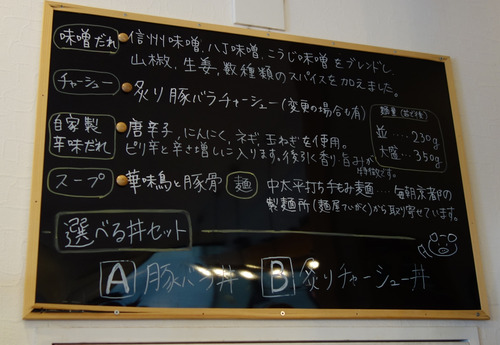 味噌だれ 信州味噌、八丁味噌、こうじ味噌をブレンドし
山椒、生姜、数種類のスパイスを加えました。
チャーシュー 炙り豚バラチャーシュー(変更の場合も有)
麺量(ゆで前)
並…‥230g
大盛…350g
自家製辛味だれ 唐辛子、にんにく、ネギ、玉ねぎを使用。
ピリ辛と辛さ増しに入ります。後引く香り・旨みが
特徴です。
スープ 華味鳥と豚骨
麺 中太平打ち手もみ麺……毎朝京都の
製麺所(麺屋ていがく)から取り寄せています。
選べる丼セット
A 豚バラ丼 B 炙りチャーシュー丼